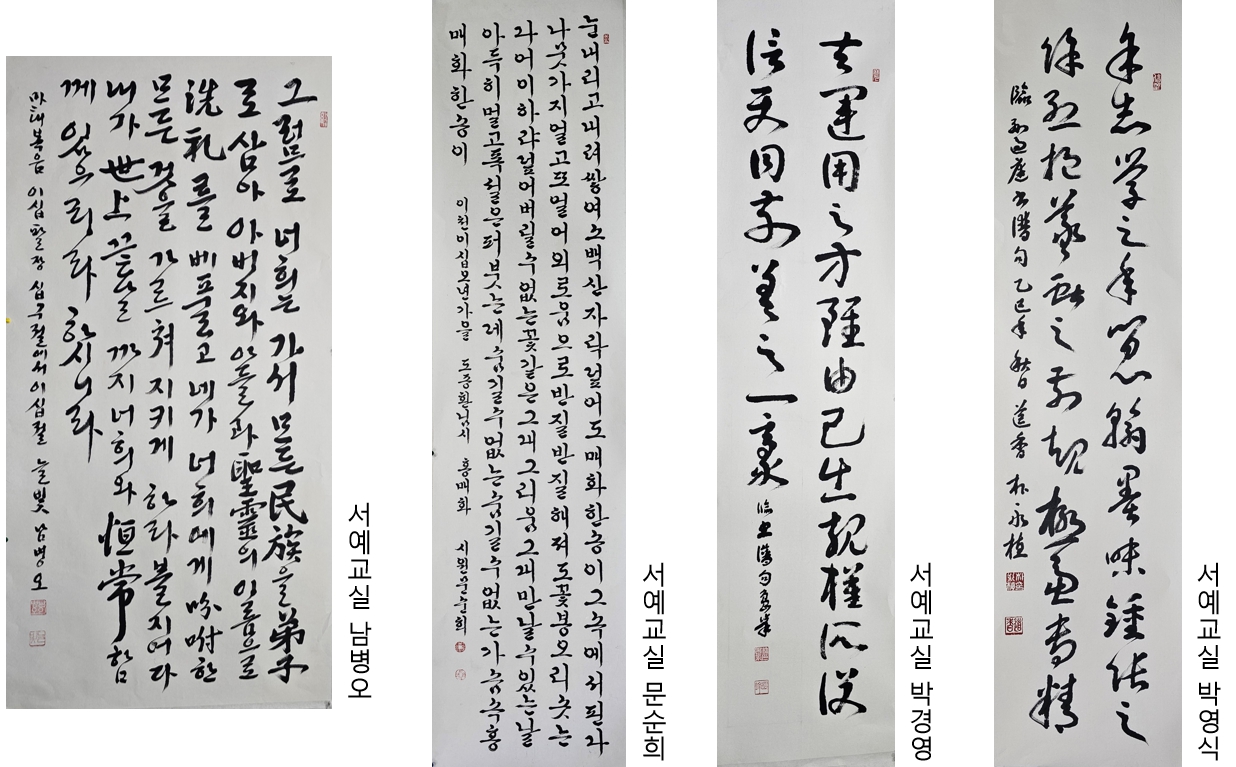 그럼므로 너희는 가서 모든 民族을 弟子
로 삼아 아버지와 아들과 聖靈의 이름으로
洗礼를 베풀고 네가 너희에게 吩咐한
모든 것을 가르쳐 지키게 하라 볼지어다
내가 世上 끝날 까지 너희와 恒常 함
께 있으리라 하시니라
마태복음 이십팔장 십구절에서이십절 늘빛 남병오
서예교실 남병오
눈내리고내려쌓여소백산자락덮어도매화한송이그속에서핀다
나뭇가지얼고또얼어외로움으로반질반질해져도꽃봉오리솟는
다어이하랴덮어버릴수없는꽃같은그대그리움그대만날수있는날
아득히멀고폭설은퍼붓는데숨길수없는숨길수없는가슴속홍
매화한송이 이천이십오년가을 도종환님시 홍매화 시원문순희
서예교실 문순희
夫運用之方雖由己出規模所設
信屬目前差之一豪 臨書譜句
서예교실 박경영
余志學之年留心翰墨味鍾張之
餘烈挹羲献之前規極慮專精
臨孫過庭書譜句 乙巳年 秋日 道香 朴永植
서예교실 박영식